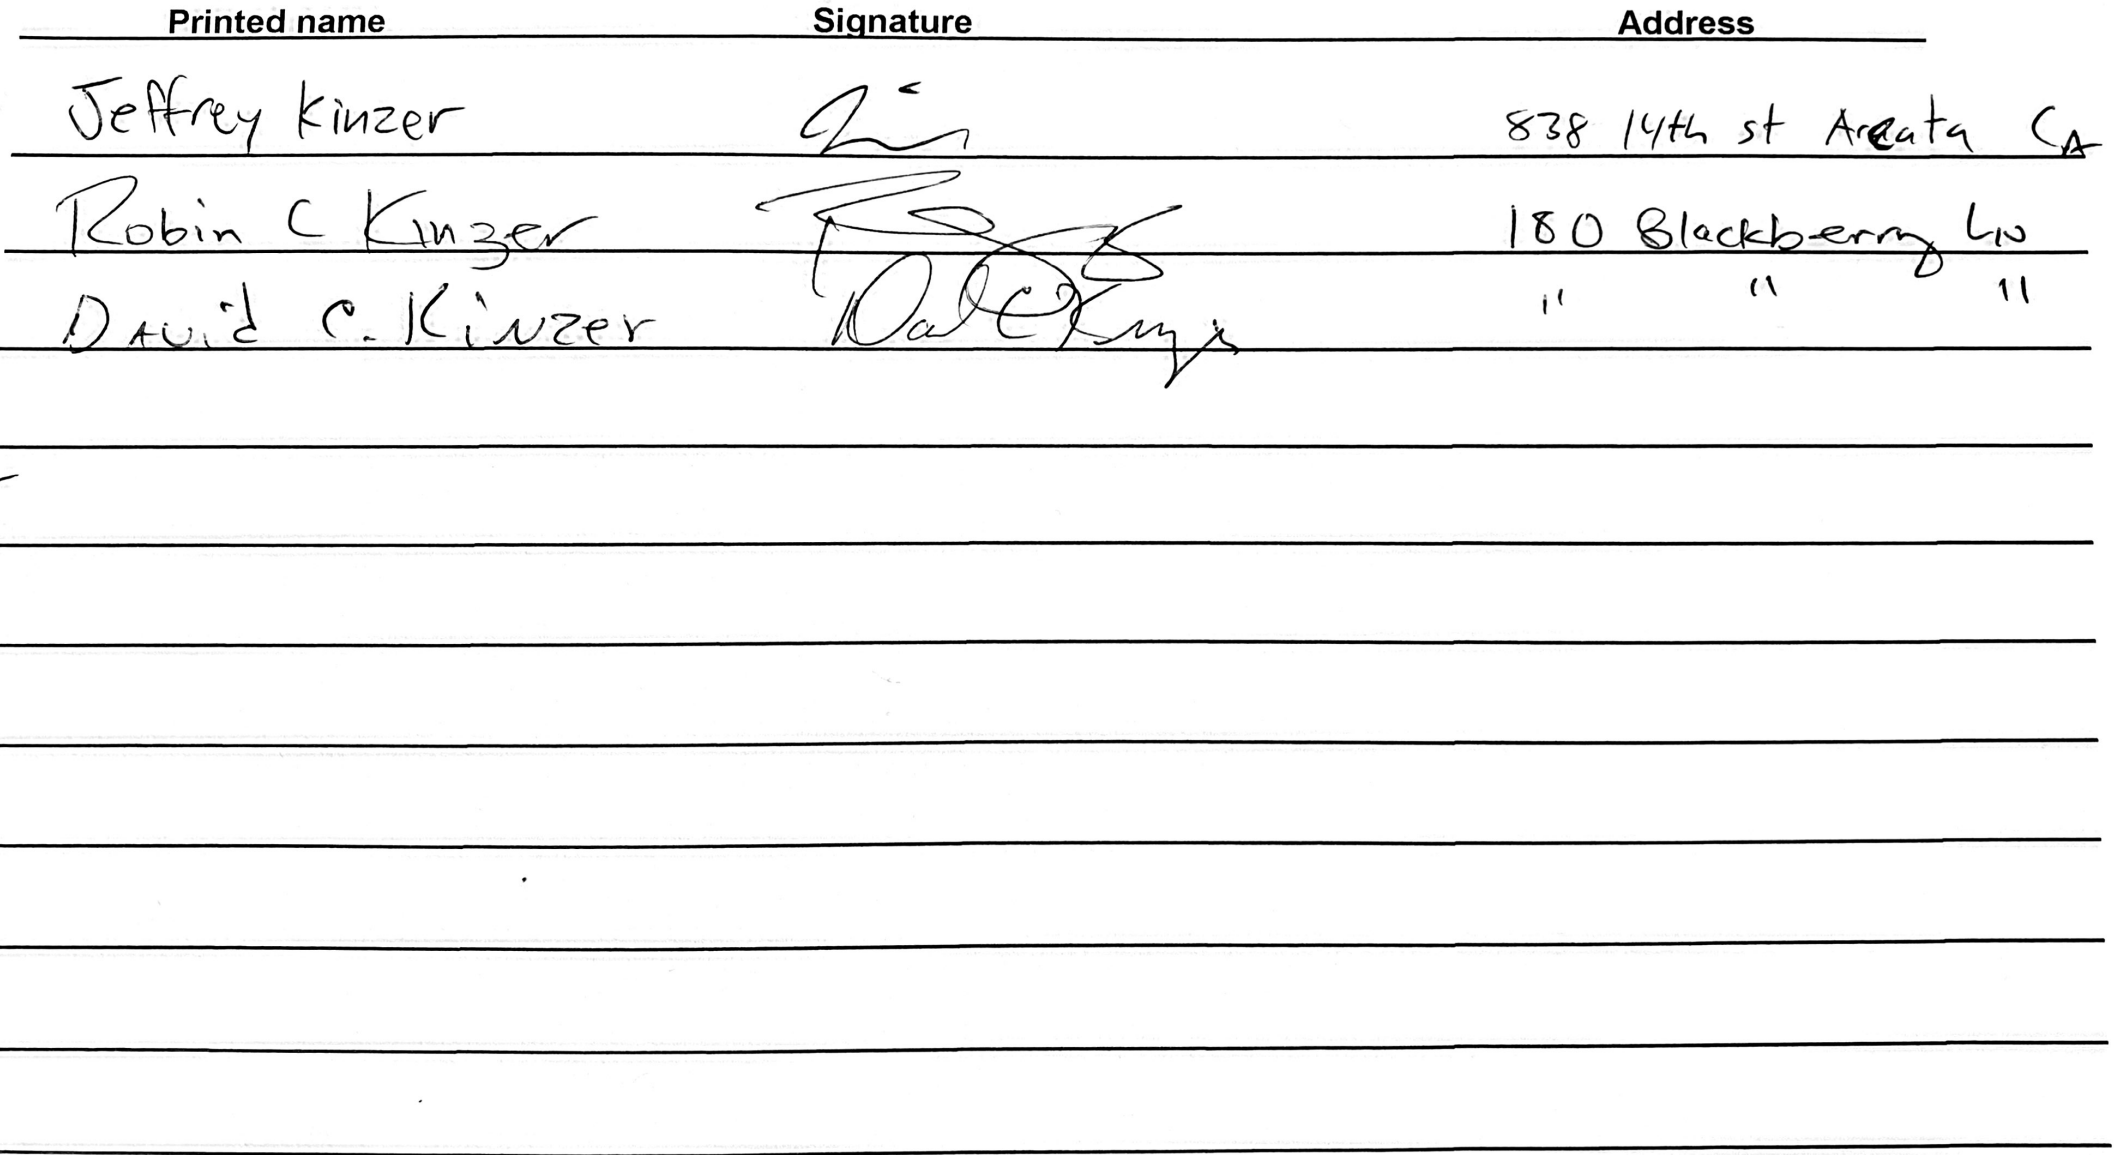 Printed name Signature Address
Jeffrey Kinzer 838 14th st Arcata CA
Robin C Kinzer 180 Blackberry LN
David C. Kinzer David C Kinzer " " "